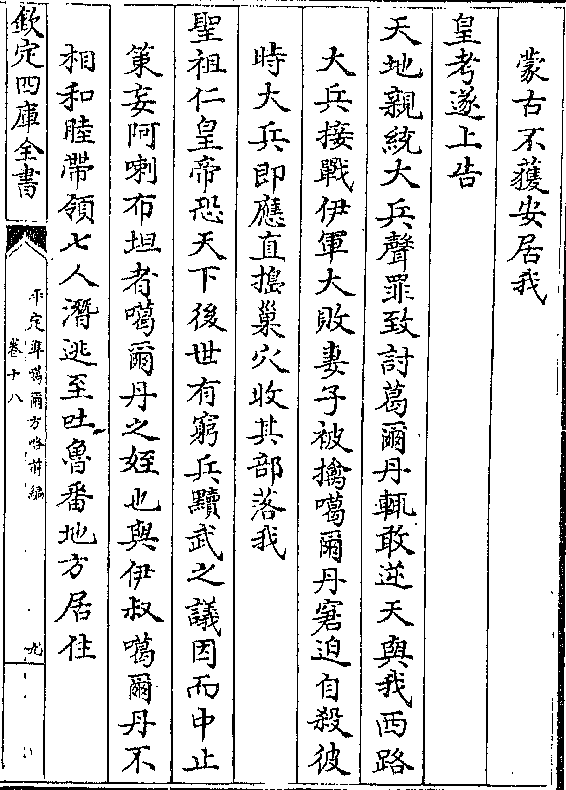 蒙古不獲安居我
皇考遂上告
天地親統大兵聲罪致討葛爾丹輒敢逆天與我西路
大兵接戰伊軍大敗妻子被擒噶爾丹窘迫自殺彼
時大兵即應直搗巢穴收其部落我
聖祖仁皇帝恐天下後世有窮兵黷武之議因而中止
策妄阿喇布坦者噶爾丹之姪也與伊叔噶爾丹不
相和睦帶領七人潛逃至吐魯番地方居住
欽定四庫全書
平定準噶爾方略前編
卷十八
九